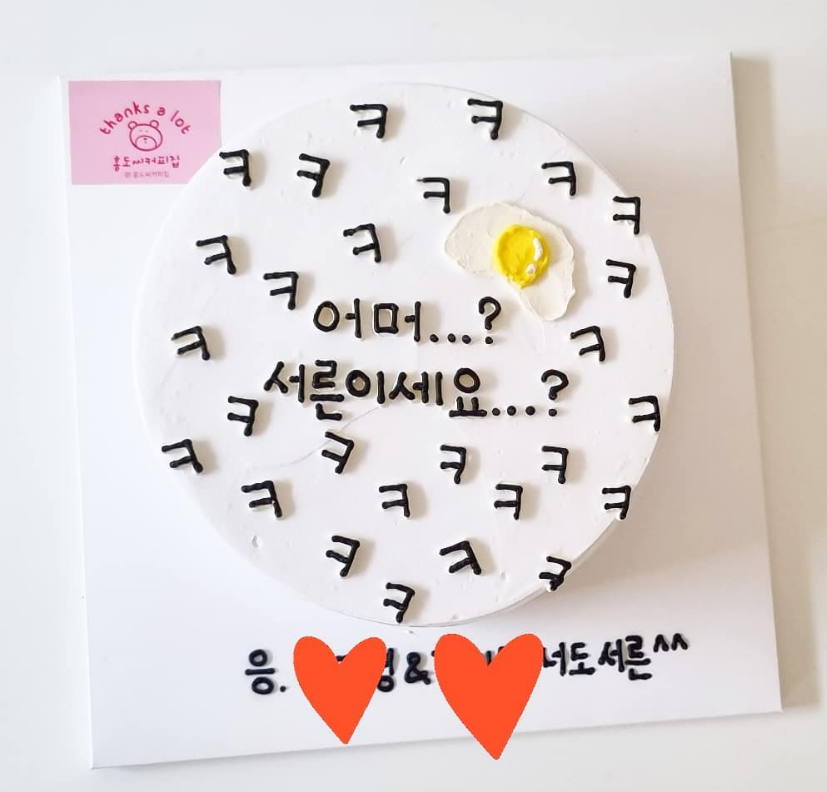 thanks a lot
홍도씨커피집
@홍도씨커피집
ㅋ ㅋ
ㅋ ㅋ ㅋ ㅋ
ㅋ
ㅋ ㅋ
ㅋ ㅋ
어머...?
ㅋ ㅋ
서른이세요...?
ㅋ ㅋ
ㅋ ㅋ ㅋ ㅋ
ㅋ ㅋ ㅋ ㅋ
ㅋ ㅋ ㅋ
ㅋ
응. & 너도 서른^^